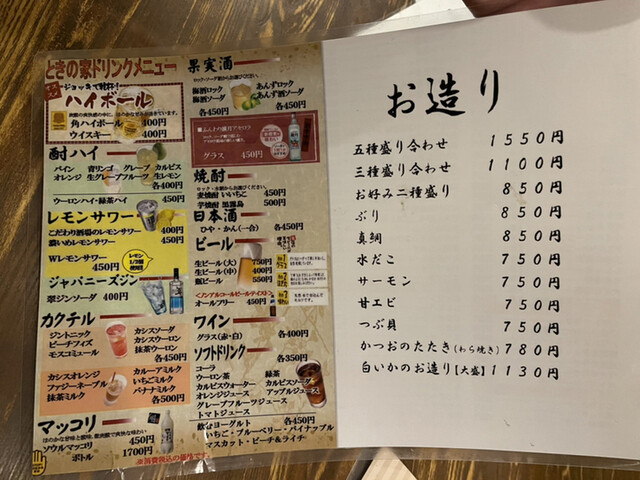 ときの家ドリンクメニュー
ジョッキで乾杯!
ハイボール
角ハイボール 400円
ウイスキー 400円
酎ハイ
パイン 青リンゴ グレープ カルピス
オレンジ 生グレープフルーツ 生レモン
各400円
ウーロンハイ・緑茶ハイ 450円
レモンサワー
こだわり酒場のレモンサワー 400円
濃いめレモンサワー 450円
Wレモンサワー
450円
レモン
1/2個
使用!
ジャパニーズジン
翠ジンソーダ 400円
カクテル
ジントニック カシスソーダ
ピーチフィズ カシスウーロン
モスコミュール 抹茶ウーロン
各450円
カシスオレンジ カルーアミルク
ファジーネーブル いちごミルク
抹茶ミルク バナナミルク
各500円
マッコリ
450円
ソウルマッコリ
ボトル 1700円
※消費税込の価格です。
果実酒
梅酒ロック あんずロック
梅酒ソーダ あんず酒ソーダ
各450円 各450円
グラス 450円
焼酎
麦焼酎 いいちこ 450円
芋焼酎 黒霧島 500円
日本酒
ひや・かん(一合) 各450円
ビール
生ビール(大) 750円
生ビール(中) 400円
瓶ビール 550円
<ノンアルコールビールテイスト>
オールフリー 450円
ワイン
グラス(赤・白) 400円
ソフトドリンク 各350円
コーラ
ウーロン茶 緑茶
カルピスウォーター カルピスソーダ
オレンジジュース アップルジュース
グレープフルーツジュース
トマトジュース
飲むヨーグルト 各450円
いちご・ブルーベリー・パイナップル
マスカット・ピーチ&ライチ
お造り
五種盛り合わせ 1550円
三種盛り合わせ 1100円
お好み二種盛り 850円
ぶり 850円
真鯛 850円
水だこ 750円
サーモン 750円
甘エビ 750円
つぶ貝 750円
かつおのたたき(わら焼き) 780円
白いかのお造り【大盛】 1130円